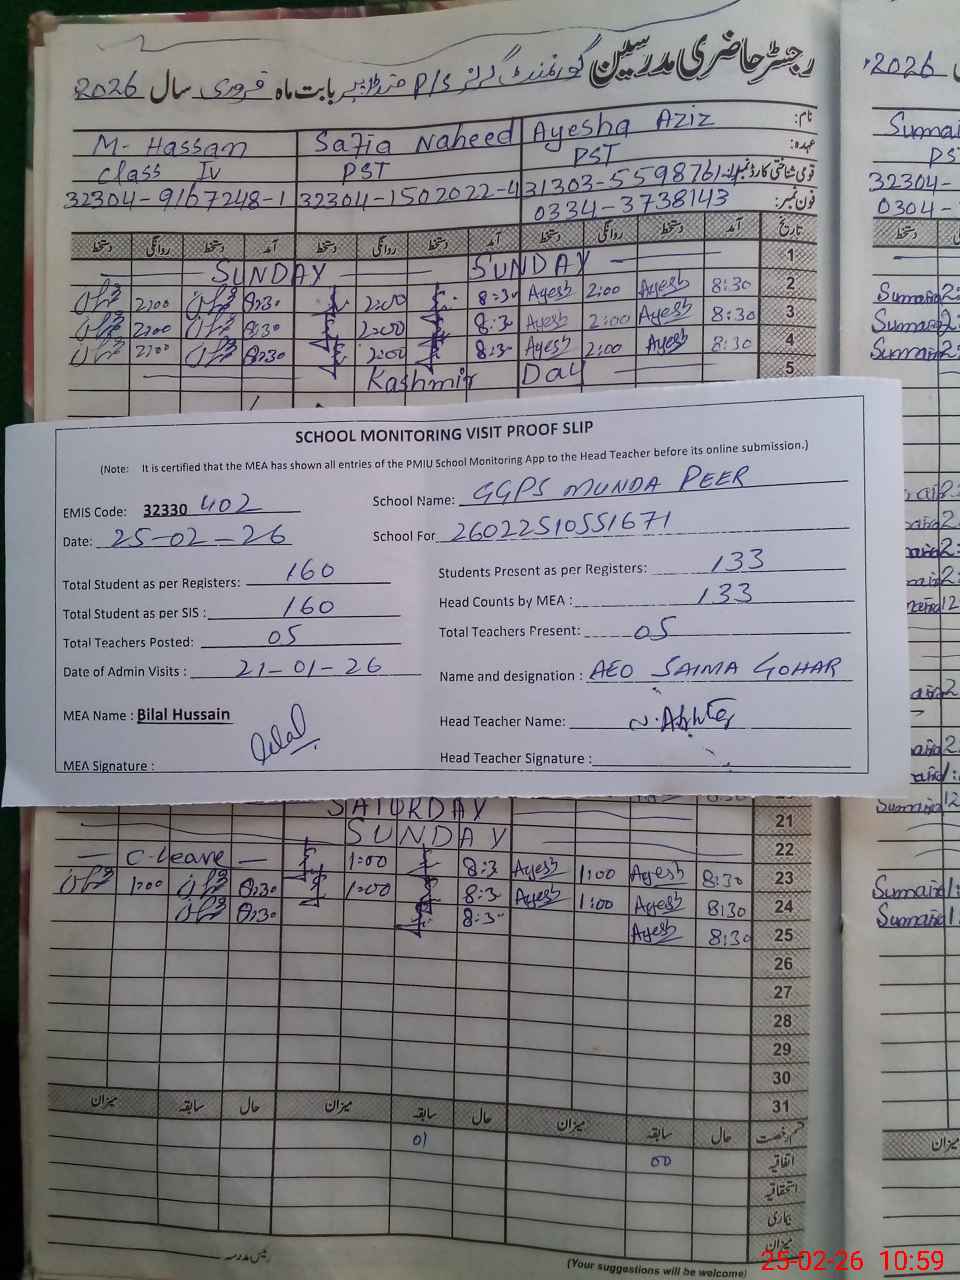 رجسٹر حاضری مدرسین گورنمنٹ گرلز P/S منڈا پیر بابت ماہ فروری سال 2026
2026
نام: Ayesha Aziz Safia Naheed M- Hassan
عہدہ: PST PST class IV
قومی شناختی کارڈ نمبر: 32304-1502022-4 32304-9167248-1
فون نمبر: 0334-3738143
32304-
0304-
تاریخ آمد دستخط روانگی دستخط آمد دستخط روانگی دستخط آمد دستخط روانگی دستخط
1 SUNDAY SUNDAY
2 8:30 Ayesh 2:00 Ayesh 8:30 2:00 8:30 2:00
3 8:30 Ayesh 2:00 Ayesh 8:30 2:00 8:30 2:00
4 8:30 Ayesh 2:00 Ayesh 8:30 2:00 8:30 2:00
5 Kashmir Day
SCHOOL MONITORING VISIT PROOF SLIP
(Note: It is certified that the MEA has shown all entries of the PMIU School Monitoring App to the Head Teacher before its online submission.)
EMIS Code: 32330 402 School Name: GGPS MUNDA PEER
Date: 25-02-26 School For 26022510551671
Total Student as per Registers: 160 Students Present as per Registers: 133
Total Student as per SIS : 160 Head Counts by MEA : 133
Total Teachers Posted: 05 Total Teachers Present: 05
Date of Admin Visits : 21-01-26 Name and designation : AEO SAIMA GOHAR
MEA Name : Bilal Hussain Head Teacher Name: N. Akhter
MEA Signature : Bilal Head Teacher Signature :
21 SATURDAY
22 SUNDAY
23 8:30 Ayesh 1:00 Ayesh 8:3 1:00 C-Leave
24 8:30 Ayesh 1:00 Ayesh 8:3 1:00 8:30 1:00
25 8:30 Ayesh 8:3 8:30
26
27
28
29
30
31
قسم رخصت حال سابقہ میزان حال سابقہ میزان حال سابقہ میزان
اتفاقیہ 00 01
استحقاقیہ
بیماری
میزان
رئیس مدرسہ
(Your suggestions will be welcome)
25-02-26 10:59